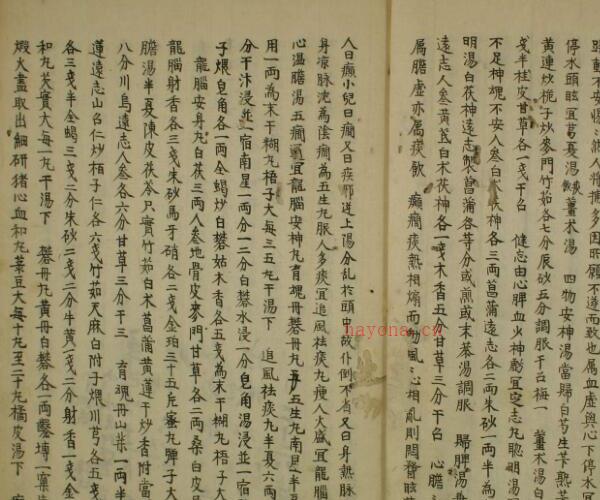 停水頭眩宜葛夏湯
黃連炒梔子炒麥門竹茹各七分辰砂五分調服干三梅一
戔半桂皮甘草各一戔干三 健忘由心脾血火神虧宜定志丸聰明湯
不足神魂不安人參白茯苓白茯神各三兩菖蒲遠志各二兩朱砂一兩半為
明湯白茯神遠志製菖蒲各等分或煎或末茶湯調服 歸脾湯
遠志人參黃芪白朮茯神各一戔木香五分甘草三分干三 心膽
属膽虛亦属痰飲 癲癎痰熱相煽而動風
人曰癲小兒曰癎又曰痰邪逆上陽分乱於頭中故仆倒不省又曰身熱脉
身凉脉沈為陰癎為五生丸豚人多痰宜追風祛痰丸瘦人火盛宜龍腦
心温膽湯五癎宜龍腦安神丸育魂丹礬丹丸 五生丸南星半夏
用一兩為末干糊丸梧子大每三五丸干湯下 追風祛痰丸半夏六兩
分干汁浸並一宿南星一兩分一二分白礬水浸一分皂角湯浸並一宿
子煨皂角各一兩全蝎炒白礬枯木香各五戔為末干糊丸梧子大
龍腦安身丸白茯三兩人參地骨皮麥門甘草各二兩桑白皮
龍腦射香各三戔朱砂馬牙硝各二戔金珀三十五斤蜜丸彈子大
膽湯半夏陳皮茯苓只實竹茹白朮菖蒲黃連干炒香附當
八分川烏遠志人參各六分甘草三分干三 育魂丹山柴一兩半
蓮遠志山召仁炒栢子仁各六戔竹茹天麻白附子煨川芎各五戔
各三戔半全蝎三戔二分朱砂二戔二分牛黃一戔二分射香一戔
和丸芡實大每一丸干湯下 礬丹丸黃丹白礬各一兩鑿塼一窠
煅火盡取出細研猪心血和丸菉豆大每十丸至二十丸橘皮湯下
hayona.cn